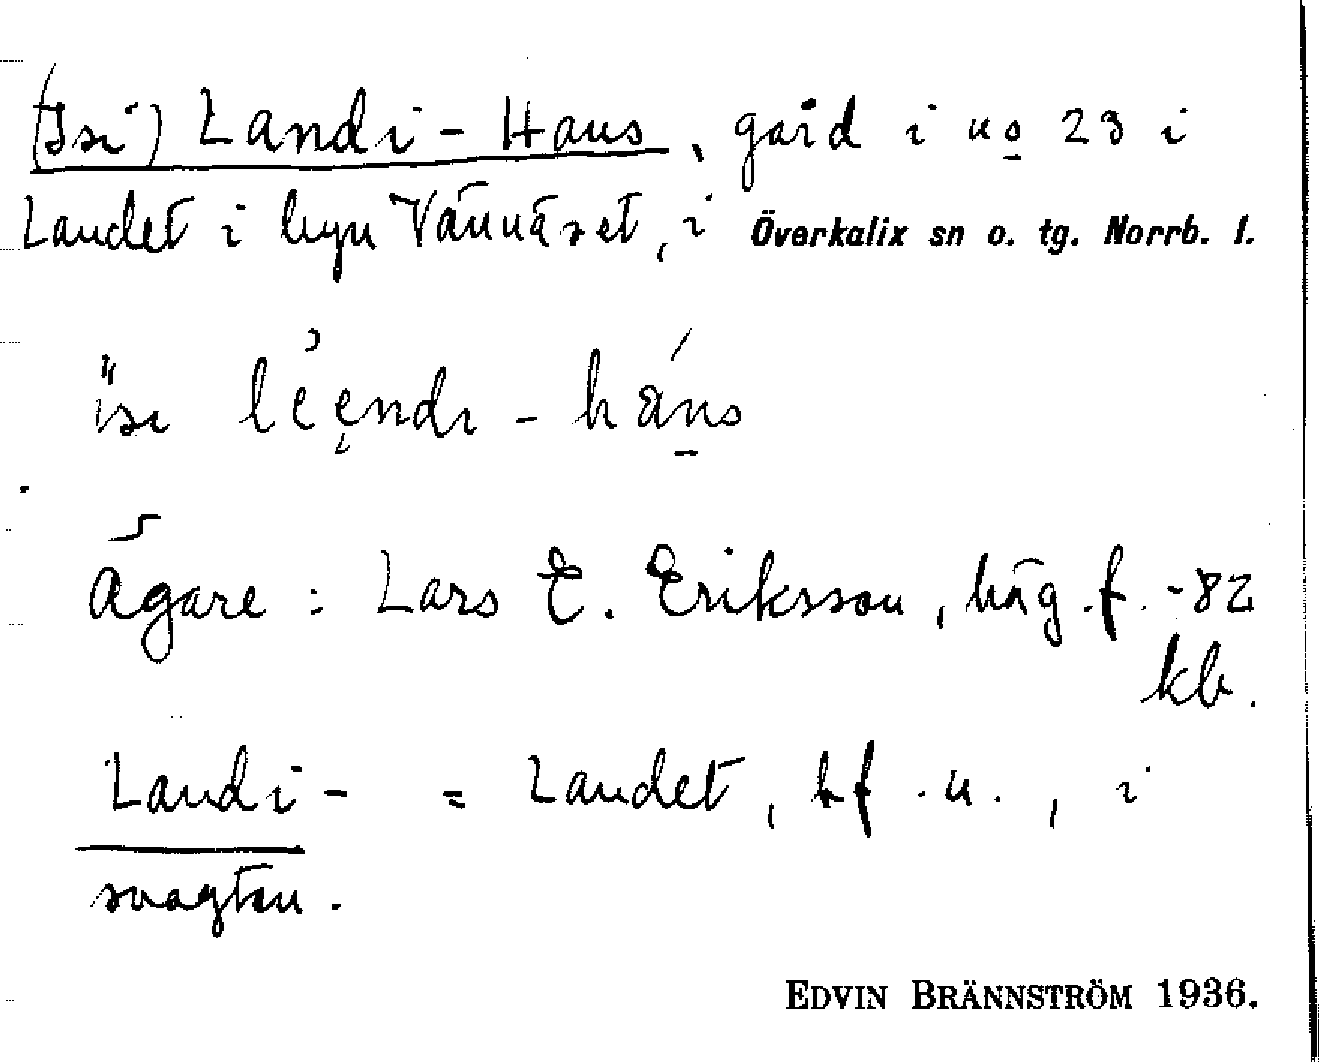 (Isi) Landi-Hans, gård i no 23 i
Landet i byn Vännäset, i Överkalix sn o. tg. Norrb. l.
Ägare: Lars E. Eriksson, häg.f. -82
kb.
Landi- = Landet, bf.n., i
svagton.
EDVIN BRÄNNSTRÖM 1936.